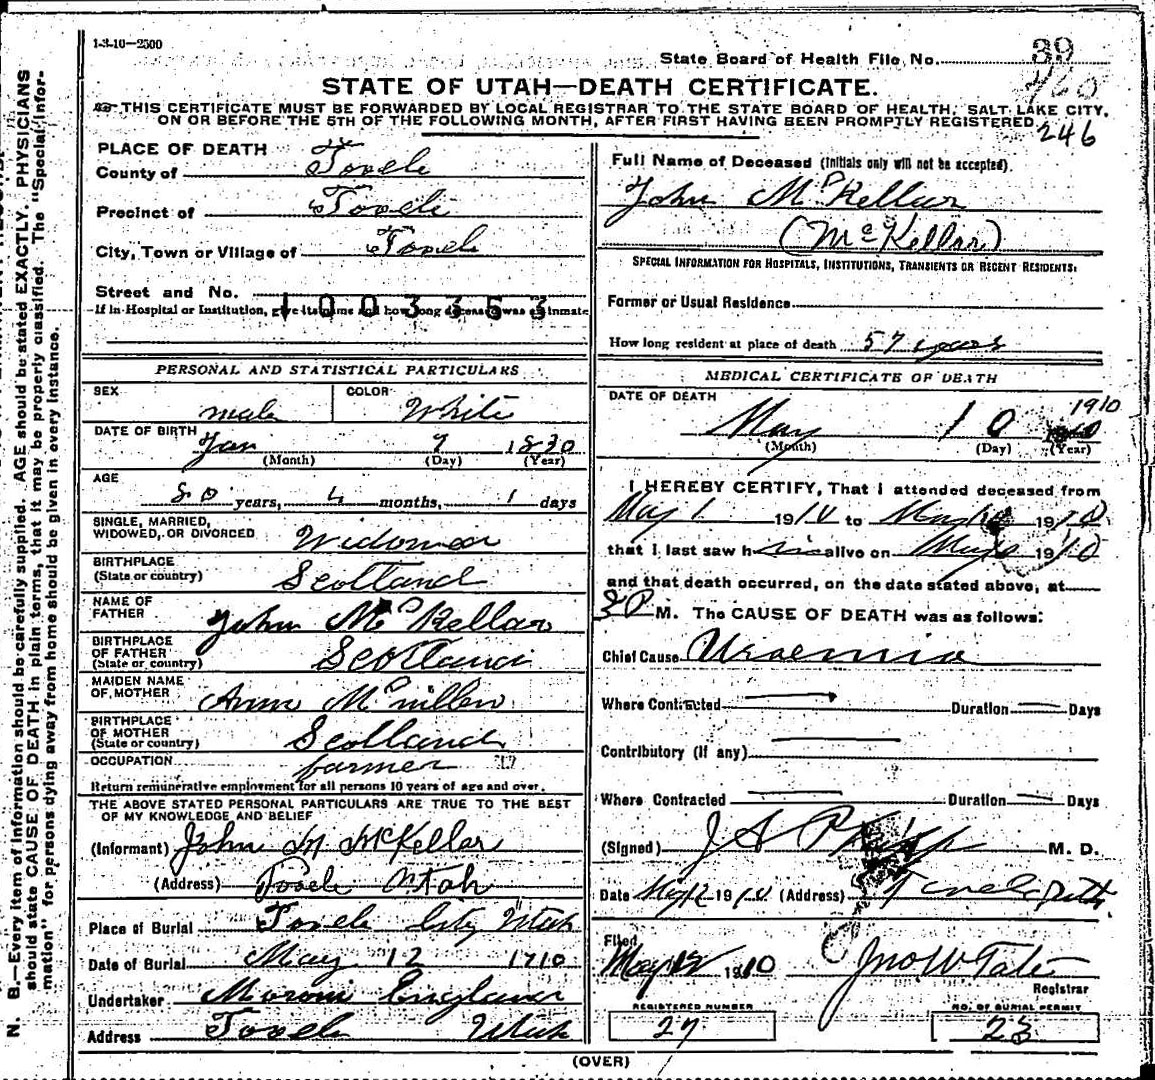 1-3-10—2500
State Board of Health File No. 39
460
STATE OF UTAH—DEATH CERTIFICATE.
THIS CERTIFICATE MUST BE FORWARDED BY LOCAL REGISTRAR TO THE STATE BOARD OF HEALTH, SALT LAKE CITY,
ON OR BEFORE THE 5TH OF THE FOLLOWING MONTH, AFTER FIRST HAVING BEEN PROMPTLY REGISTERED
246
PLACE OF DEATH
County of Tooele
Precinct of Tooele
City, Town or Village of Tooele
Street and No.
1003353
If in Hospital or Institution, give its name and how long deceased was an inmate
PERSONAL AND STATISTICAL PARTICULARS
SEX male COLOR White
DATE OF BIRTH Jan 9 1830
(Month) (Day) (Year)
AGE 80 years, 4 months, 1 days
SINGLE, MARRIED,
WIDOWED, OR DIVORCED Widower
BIRTHPLACE
(State or country) Scotland
NAME OF
FATHER John McKellar
BIRTHPLACE
OF FATHER
(State or country) Scotland
MAIDEN NAME
OF MOTHER Ann McMillen
BIRTHPLACE
OF MOTHER
(State or country) Scotland
OCCUPATION farmer
Return remunerative employment for all persons 10 years of age and over.
THE ABOVE STATED PERSONAL PARTICULARS ARE TRUE TO THE BEST
OF MY KNOWLEDGE AND BELIEF
(Informant) John M McKellar
(Address) Tooele Utah
Place of Burial Tooele City Utah
Date of Burial May 12 1910
Undertaker Moroni England
Address Tooele Utah
Full Name of Deceased (Initials only will not be accepted).
John McKellar
(McKellar)
SPECIAL INFORMATION FOR HOSPITALS, INSTITUTIONS, TRANSIENTS OR RECENT RESIDENTS:
Former or Usual Residence
How long resident at place of death 57 years
MEDICAL CERTIFICATE OF DEATH
DATE OF DEATH
May 10 1910
(Month) (Day) (Year)
I HEREBY CERTIFY, That I attended deceased from
May 1 1910 to May 10 1910
that I last saw him alive on May 1910
and that death occurred, on the date stated above, at
3 P M. The CAUSE OF DEATH was as follows:
Chief Cause Uraemia
Where Contracted Duration Days
Contributory (if any)
Where Contracted Duration Days
(Signed) J A Phipps M. D.
Date May 12 1910 (Address) Tooele Utah
Filed
May 12 1910 Jno W Tate
Registrar
REGISTERED NUMBER
27
NO. OF BURIAL PERMIT
23
(OVER)
N. B.—Every item of information should be carefully supplied. AGE should be stated EXACTLY. PHYSICIANS
should state CAUSE OF DEATH in plain terms, that it may be properly classified. The "Special Infor-
mation" for persons dying away from home should be given in every instance.